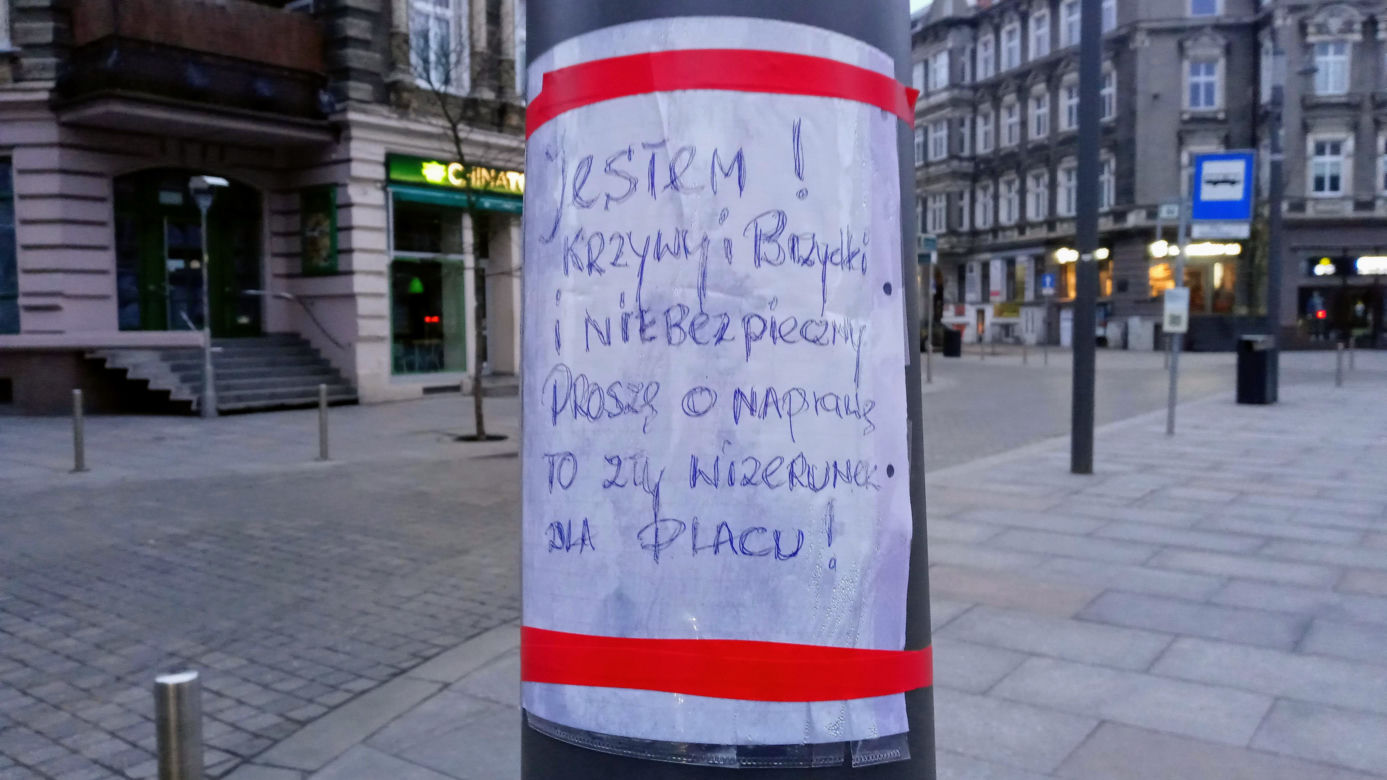 jESTEM !
KRZYWY i BRZYDKI
i NIEBEZPIECZNY
PROSZĘ O NAPRAWĘ
TO ZŁY WIZERUNEK
DLA PLACU !
CHINATO